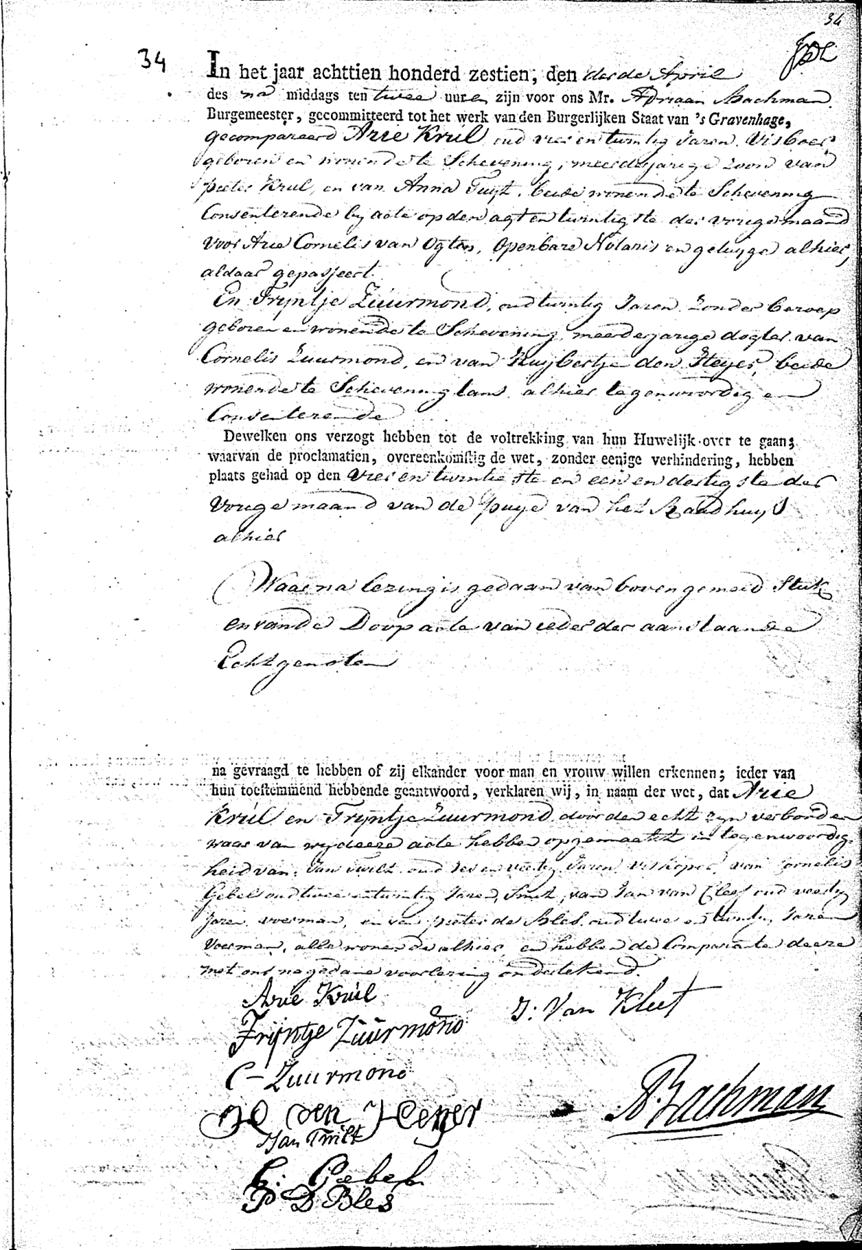 34
34
In het jaar achttien honderd zestien, den derde April
des na middags ten twee uuren zijn voor ons Mr. Adriaan Bachman
Burgemeester, gecommitteerd tot het werk van den Burgerlijken Staat van 's Gravenhage,
gecompareerd Arie Krul oud vier en twintig Jaren, Visboer
geboren en wonende te Schevening, meerderjarige zoon van
pieter Krul, en van Anna Tuijt, beide wonende te Schevening
Consenterende bij acte op den agt en twintigste der vorige maand
voor Arie Cornelis van Ogten, Openbare Notaris en getuijge alhier,
aldaar gepasseert.
En Trijntje Zuurmond, oud twintig Jaren zonder beroep
geboren en wonende te Schevening, meerderjarige dogter van
Cornelis Zuurmond, en van Huijbertje den Heyer, beide
wonende te Schevening tans alhier tegenwoordig en
Consenterende
Dewelken ons verzogt hebben tot de voltrekking van hun Huwelijk over te gaan;
waarvan de proclamatien, overeenkomstig de wet, zonder eenige verhindering, hebben
plaats gehad op den vier en twintigste en een en dertigste der
vorige maand van de puye van het Raadhuijs
alhier
Waarna lezing is gedaan van bovengemeld Stuk
en van de Doop acte van ieder der aanstaande
Echtgenoten
na gevraagd te hebben of zij elkander voor man en vrouw willen erkennen; ieder van
hun toestemmend hebbende geantwoord, verklaren wij, in naam der wet, dat Arie
Krul en Trijntje Zuurmond door den echt zijn verbonden
waar van wij deeze acte hebben opgemaakt in tegenwoordig
heid van: Jan Twilt oud en veertig Jaren viskoper, van Cornelis
Gebel oud twee en twintig Jaren, Smit, van Jan van Cleef oud veertig
Jaren, voerman, en van pieter de Bles, oud twee en twintig Jaren
Voerman, alle wonende alhier en hebben de Comparante deeze
met ons na gedane voorlezing ondertekend.
Arie Krul
J: Van Kleef
Trijntje Zuurmond
C Zuurmond
H den Heyer
A. Bachman
Jan Twilt
C: Gebel
P D Bles